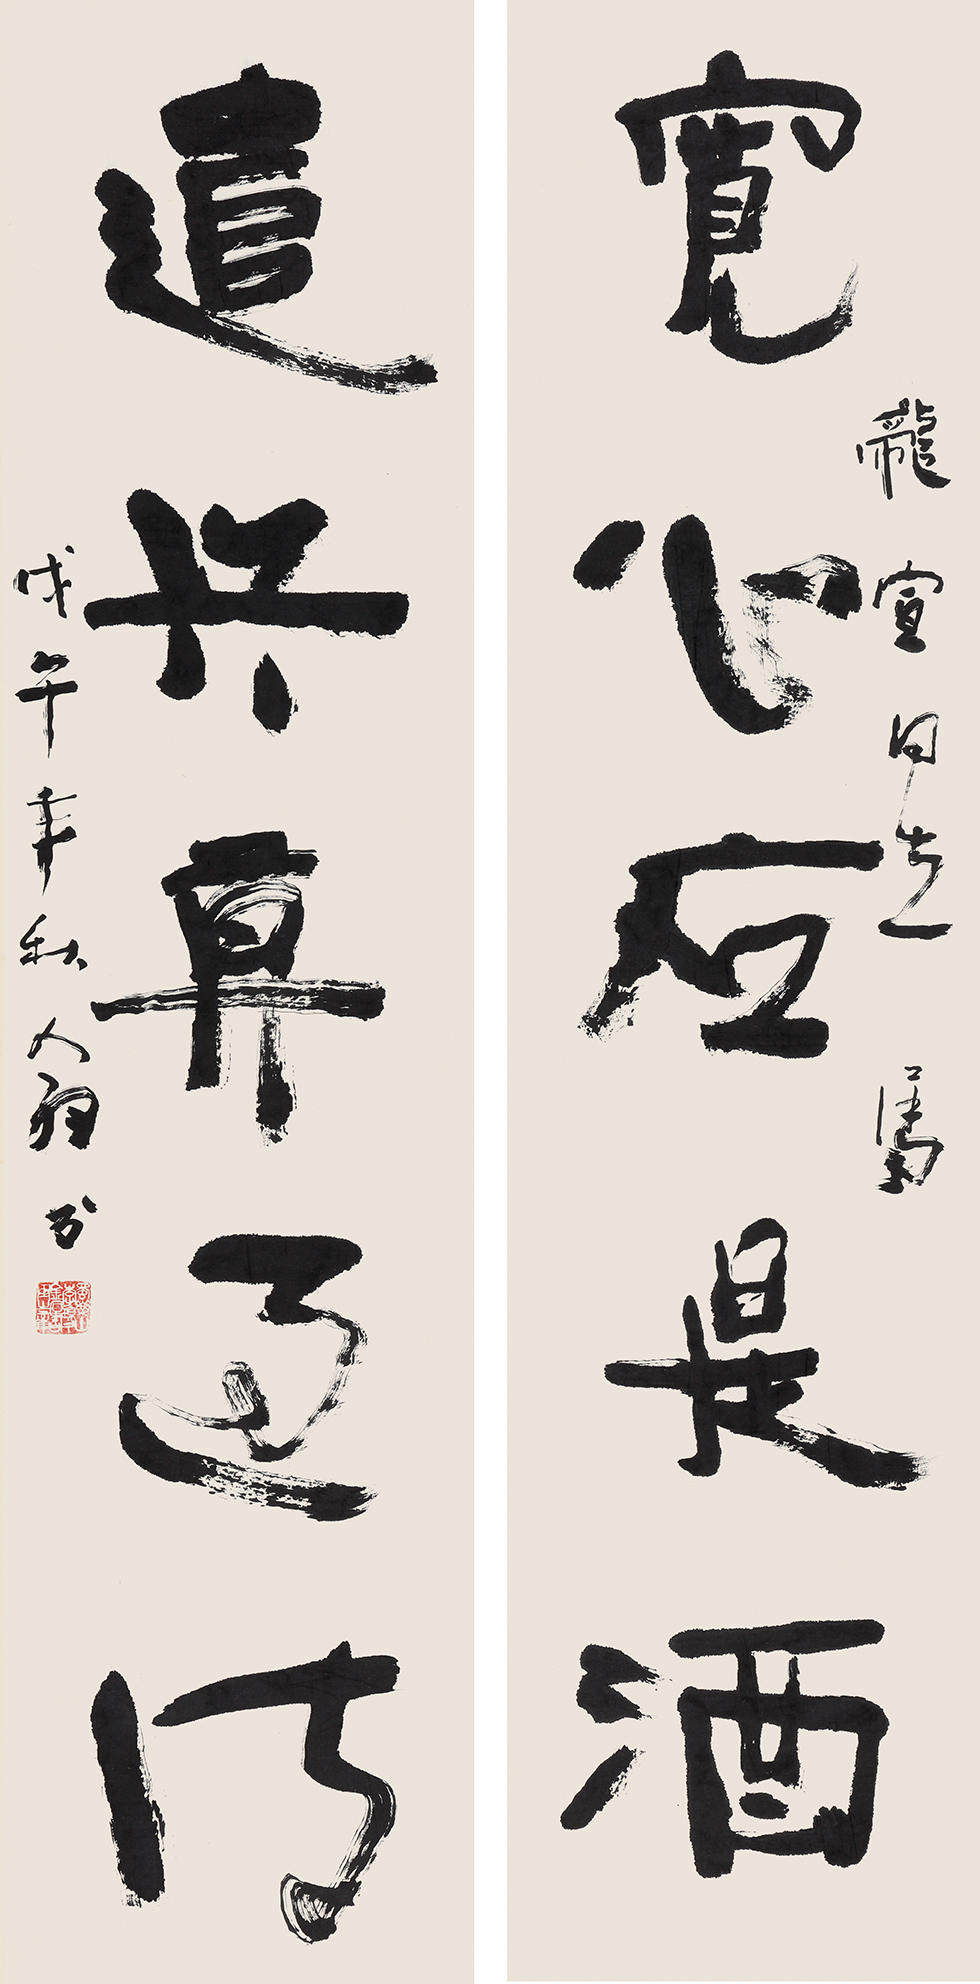 寬心應是酒
龍宣同志屬
遣興莫過詩
戊午年秋人翁書